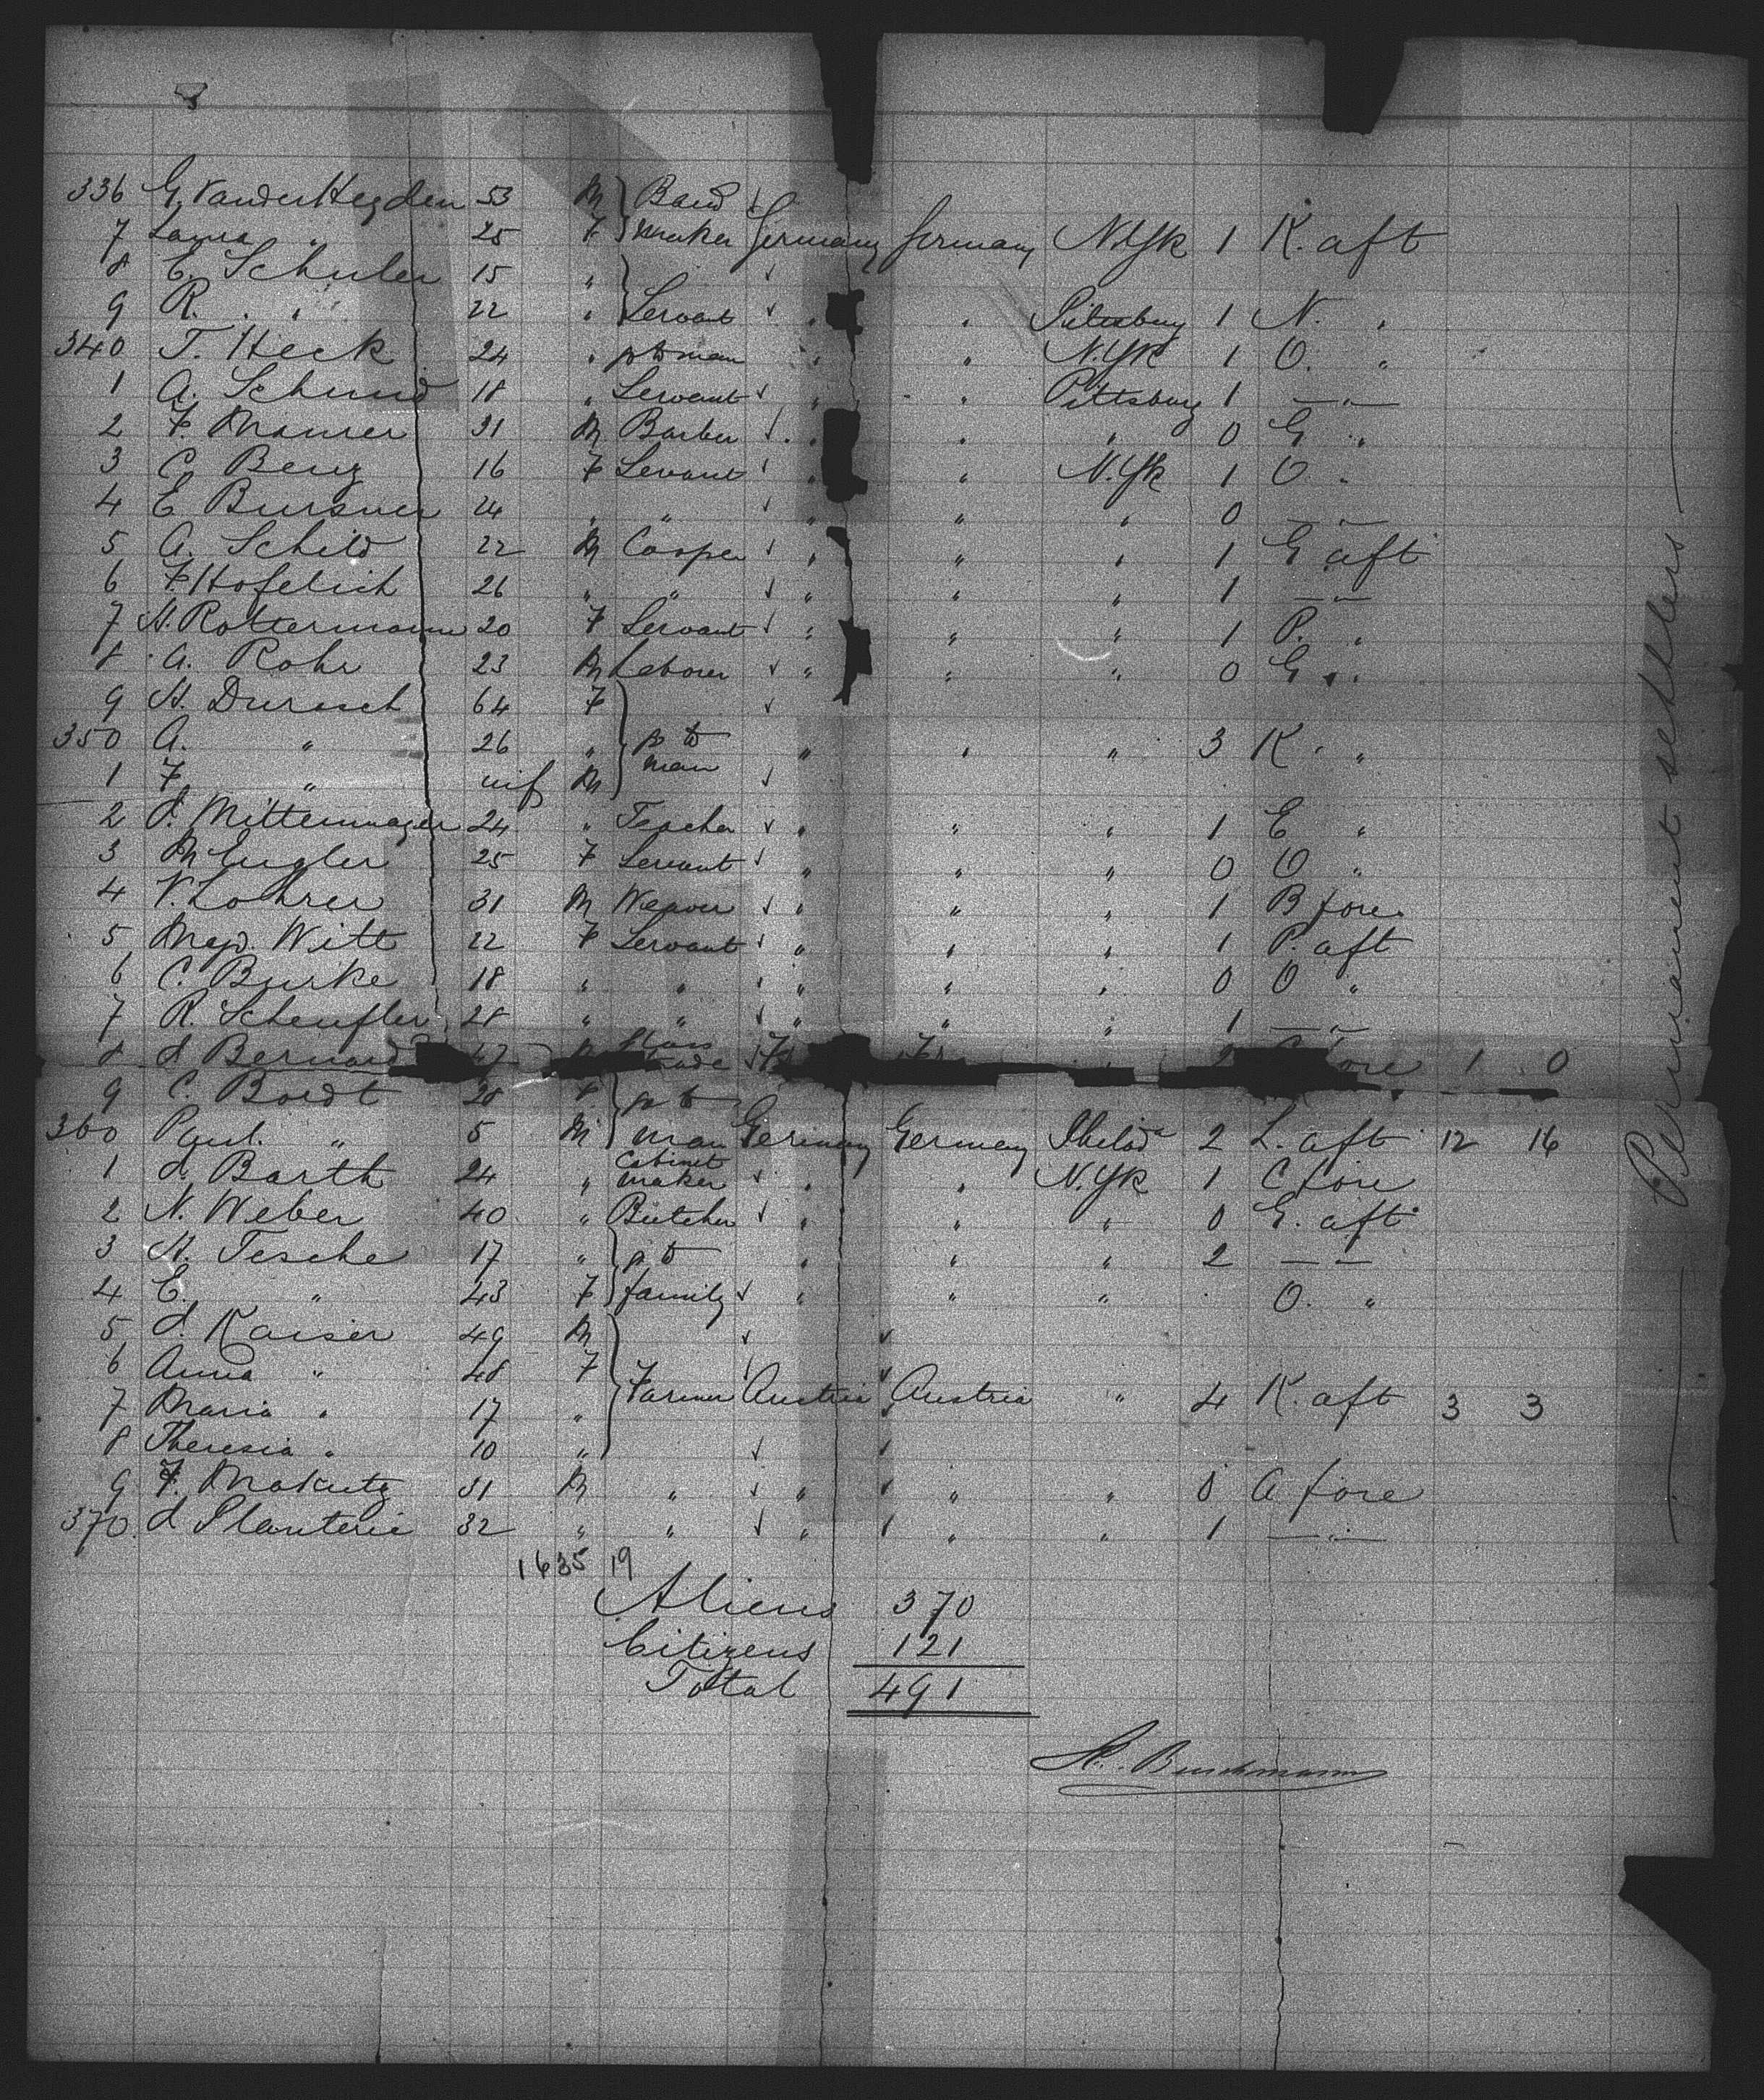 336 G. VanderHeyden 53 M } Band
7 Laura " 25 F } maker Germany Germany N.Yk 1 K. aft
8 E. Schuler 15 "
9 R. " 22 " } Servant " " 1 N. "
340 T. Heck 24 " p to man " " N.Yk 1 O. "
1 A. Schmid 18 " Servant " " Pittsburg 1 — " —
2 F. Maurer 31 M Barber " " " 0 G "
3 C. Benz 16 F Servant " " N.Yk 1 O. "
4 E Bursner 24 " " " " " 0 — " —
5 A. Schild 22 M Cooper " " " 1 G aft
6 F. Hofelich 26 " " " " " 1 — " —
7 H. Rottermann 20 F Servant " " " 1 P. "
8 A. Rohr 23 M Laborer " " " 0 G "
9 H. Durisch 64 F
350 A. " 26 " } p to man " " " 3 K. "
1 F. " inf M
2 J. Mittenmayer 24 " Teacher " " " 1 E "
3 M Engler 25 F Servant " " " 0 O "
4 V. Lohrer 31 M Weaver " " " 1 B fore
5 Magd. Witt 22 F Servant " " " 1 P. aft
6 C. Burke 18 " " " " " 0 O "
7 R. Scheufler 28 " " " " " 1 — " —
8 J Bernard 47 trade " fore 1 0
9 C. Boldt 28 F } p to
360 Paul " 5 M } man Germany Germany Philada 2 L. aft 12 16
1 J. Barth 24 " Cabinet maker " " N.Yk 1 C fore
2 N. Weber 40 " Butcher " " " 0 G. aft
3 H. Tesche 17 " } p to " " " 2 — —
4 E. " 43 F } family " " " O. "
5 J. Kaiser 49 M
6 Anna " 48 F
7 Maria " 17 " } Farmer Austria Austria " 4 K. aft 3 3
8 Theresia " 10 "
9 F. Makutz 31 M " " " " 0 A fore
370 J Planterie 32 " " " " " 1 — " —
1635 19
Aliens 370
Citizens 121
Total 491
H. Buschmann
— Permanent settlers —